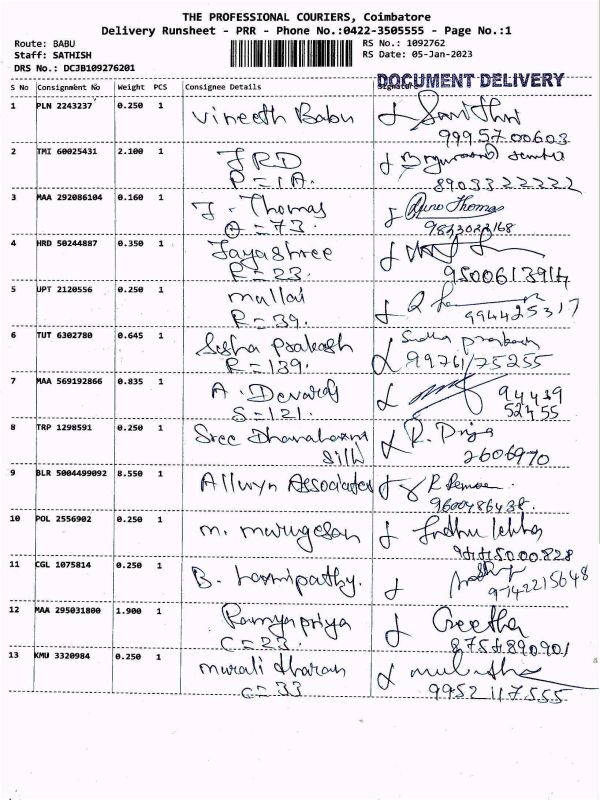 THE PROFESSIONAL COURIERS, Coimbatore
Delivery Runsheet - PRR - Phone No.:0422-3505555 - Page No.:1
Route: BABU
Staff: SATHISH
DRS No.: DCJB109276201
RS No.: 1092762
RS Date: 05-Jan-2023
DOCUMENT DELIVERY
S No Consignment No Weight PCS Consignee Details Signature
1 PLN 2243237 0.250 1 Vineeth Babu
9995700603
2 TMI 60025431 2.100 1 JRD
P=1A.
8903322222
3 MAA 292086104 0.160 1 J. Thomas Thomas
O=73.
4 HRD 50244887 0.350 1 Jayashree
R=23. 9500613917
5 UPT 2120556 0.250 1 mullai
R=39. 994425317
6 TUT 6302780 0.645 1 Sesha Prakash
R=139. 99761/75255
7 MAA 569192866 0.835 1 A. Devaraj 94439
S=121. 52455
8 TRP 1298591 0.250 1 Sree Dhanalaxmi R. Priya
Silk 2606970
9 BLR 5004499092 8.550 1 Allwyn Associates
9600486438.
10 POL 2556902 0.250 1 m. murugesan Indhu lekha
11 CGL 1075814 0.250 1 B. Laxmipathy.
9742215648
12 MAA 295031800 1.900 1 Ramyapriya Geetha
C=23. 8754890901
13 KMU 3320984 0.250 1 murali dharan
C=33 9952117555